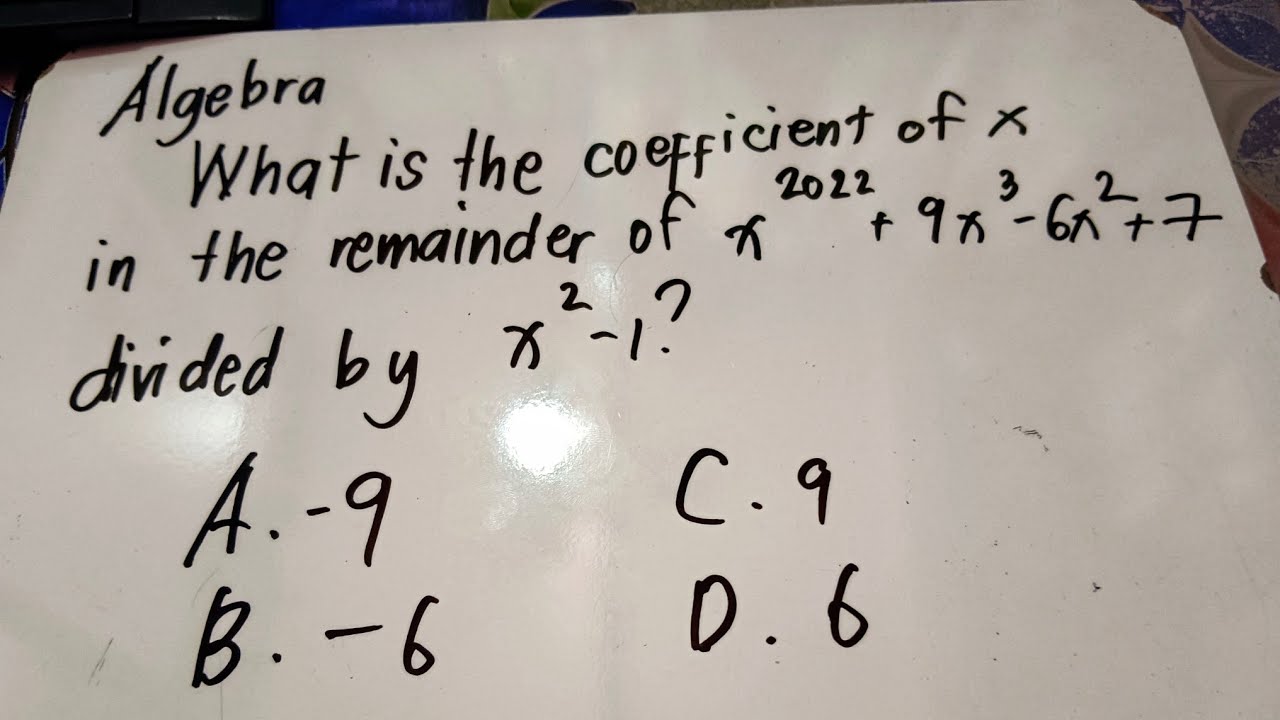 Algebra
What is the coefficient of x
in the remainder of x²⁰²² + 9x³ - 6x² + 7
divided by x² - 1?
A. -9
C. 9
B. -6
D. 6